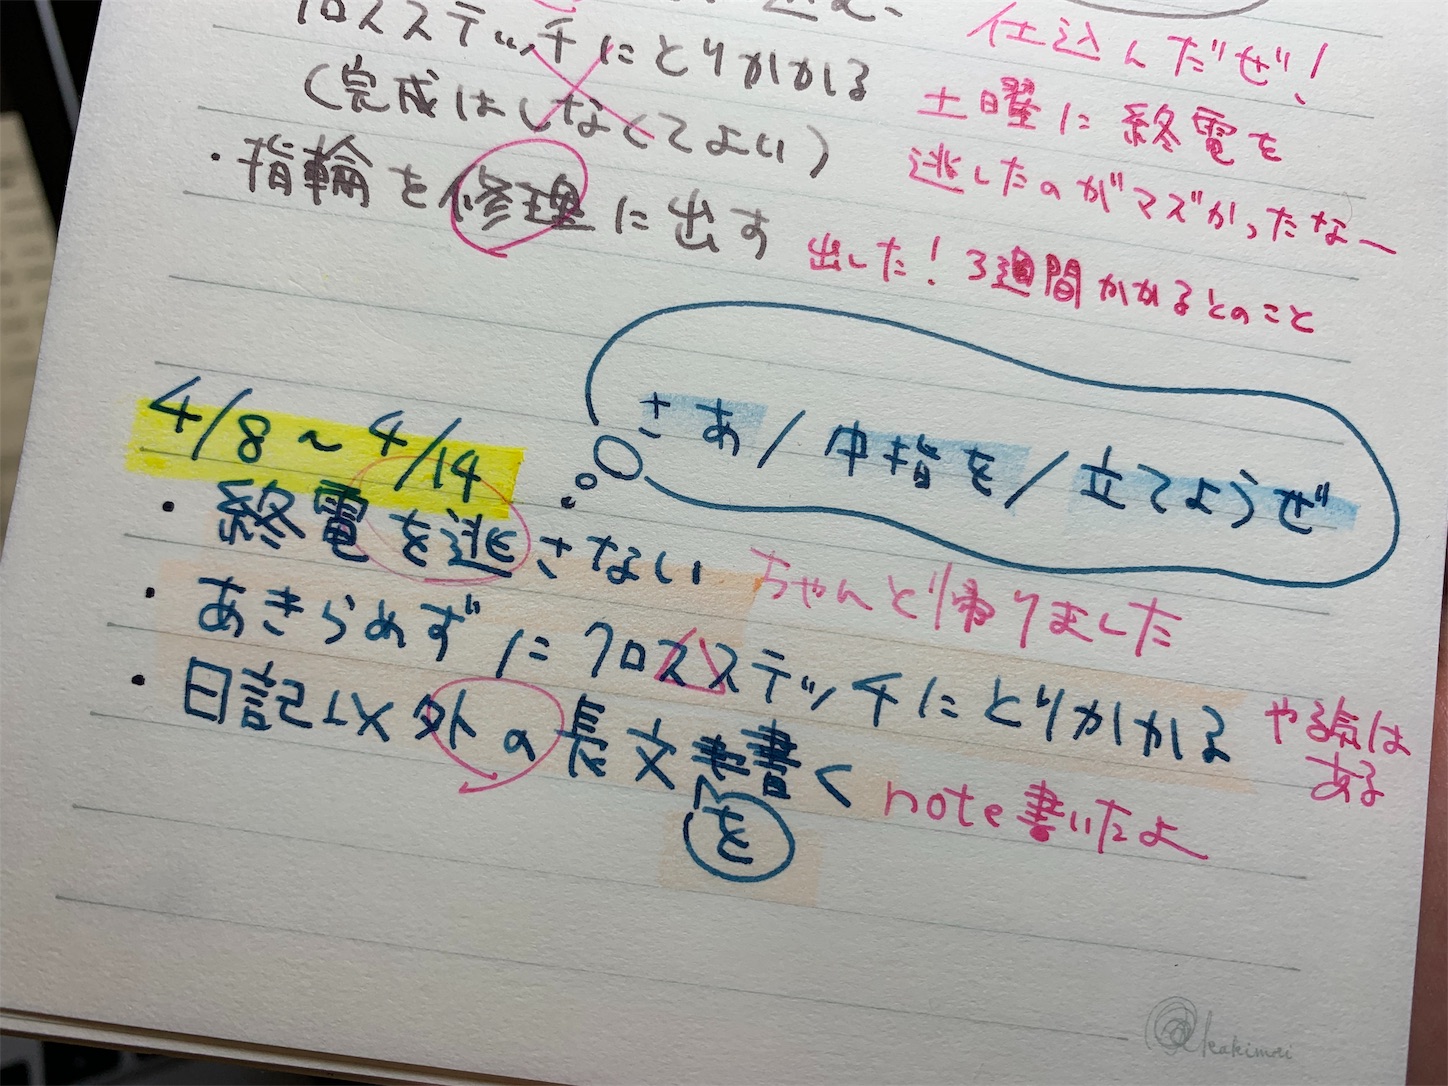 仕込んだぜ!
クロスステッチにとりかかる
(完成はしなくてよい)
土曜に終電を
逃したのがマズかったなー
・指輪を修理に出す
出した!3週間かかるとのこと
4/8〜4/14
さあ/中指を/立てようぜ
・終電を逃さない
ちゃんと帰りました
・あきらめずにクロスステッチにとりかかる
やる気は
ある
・日記以外の長文書く
を
note書いたよ
kakimori